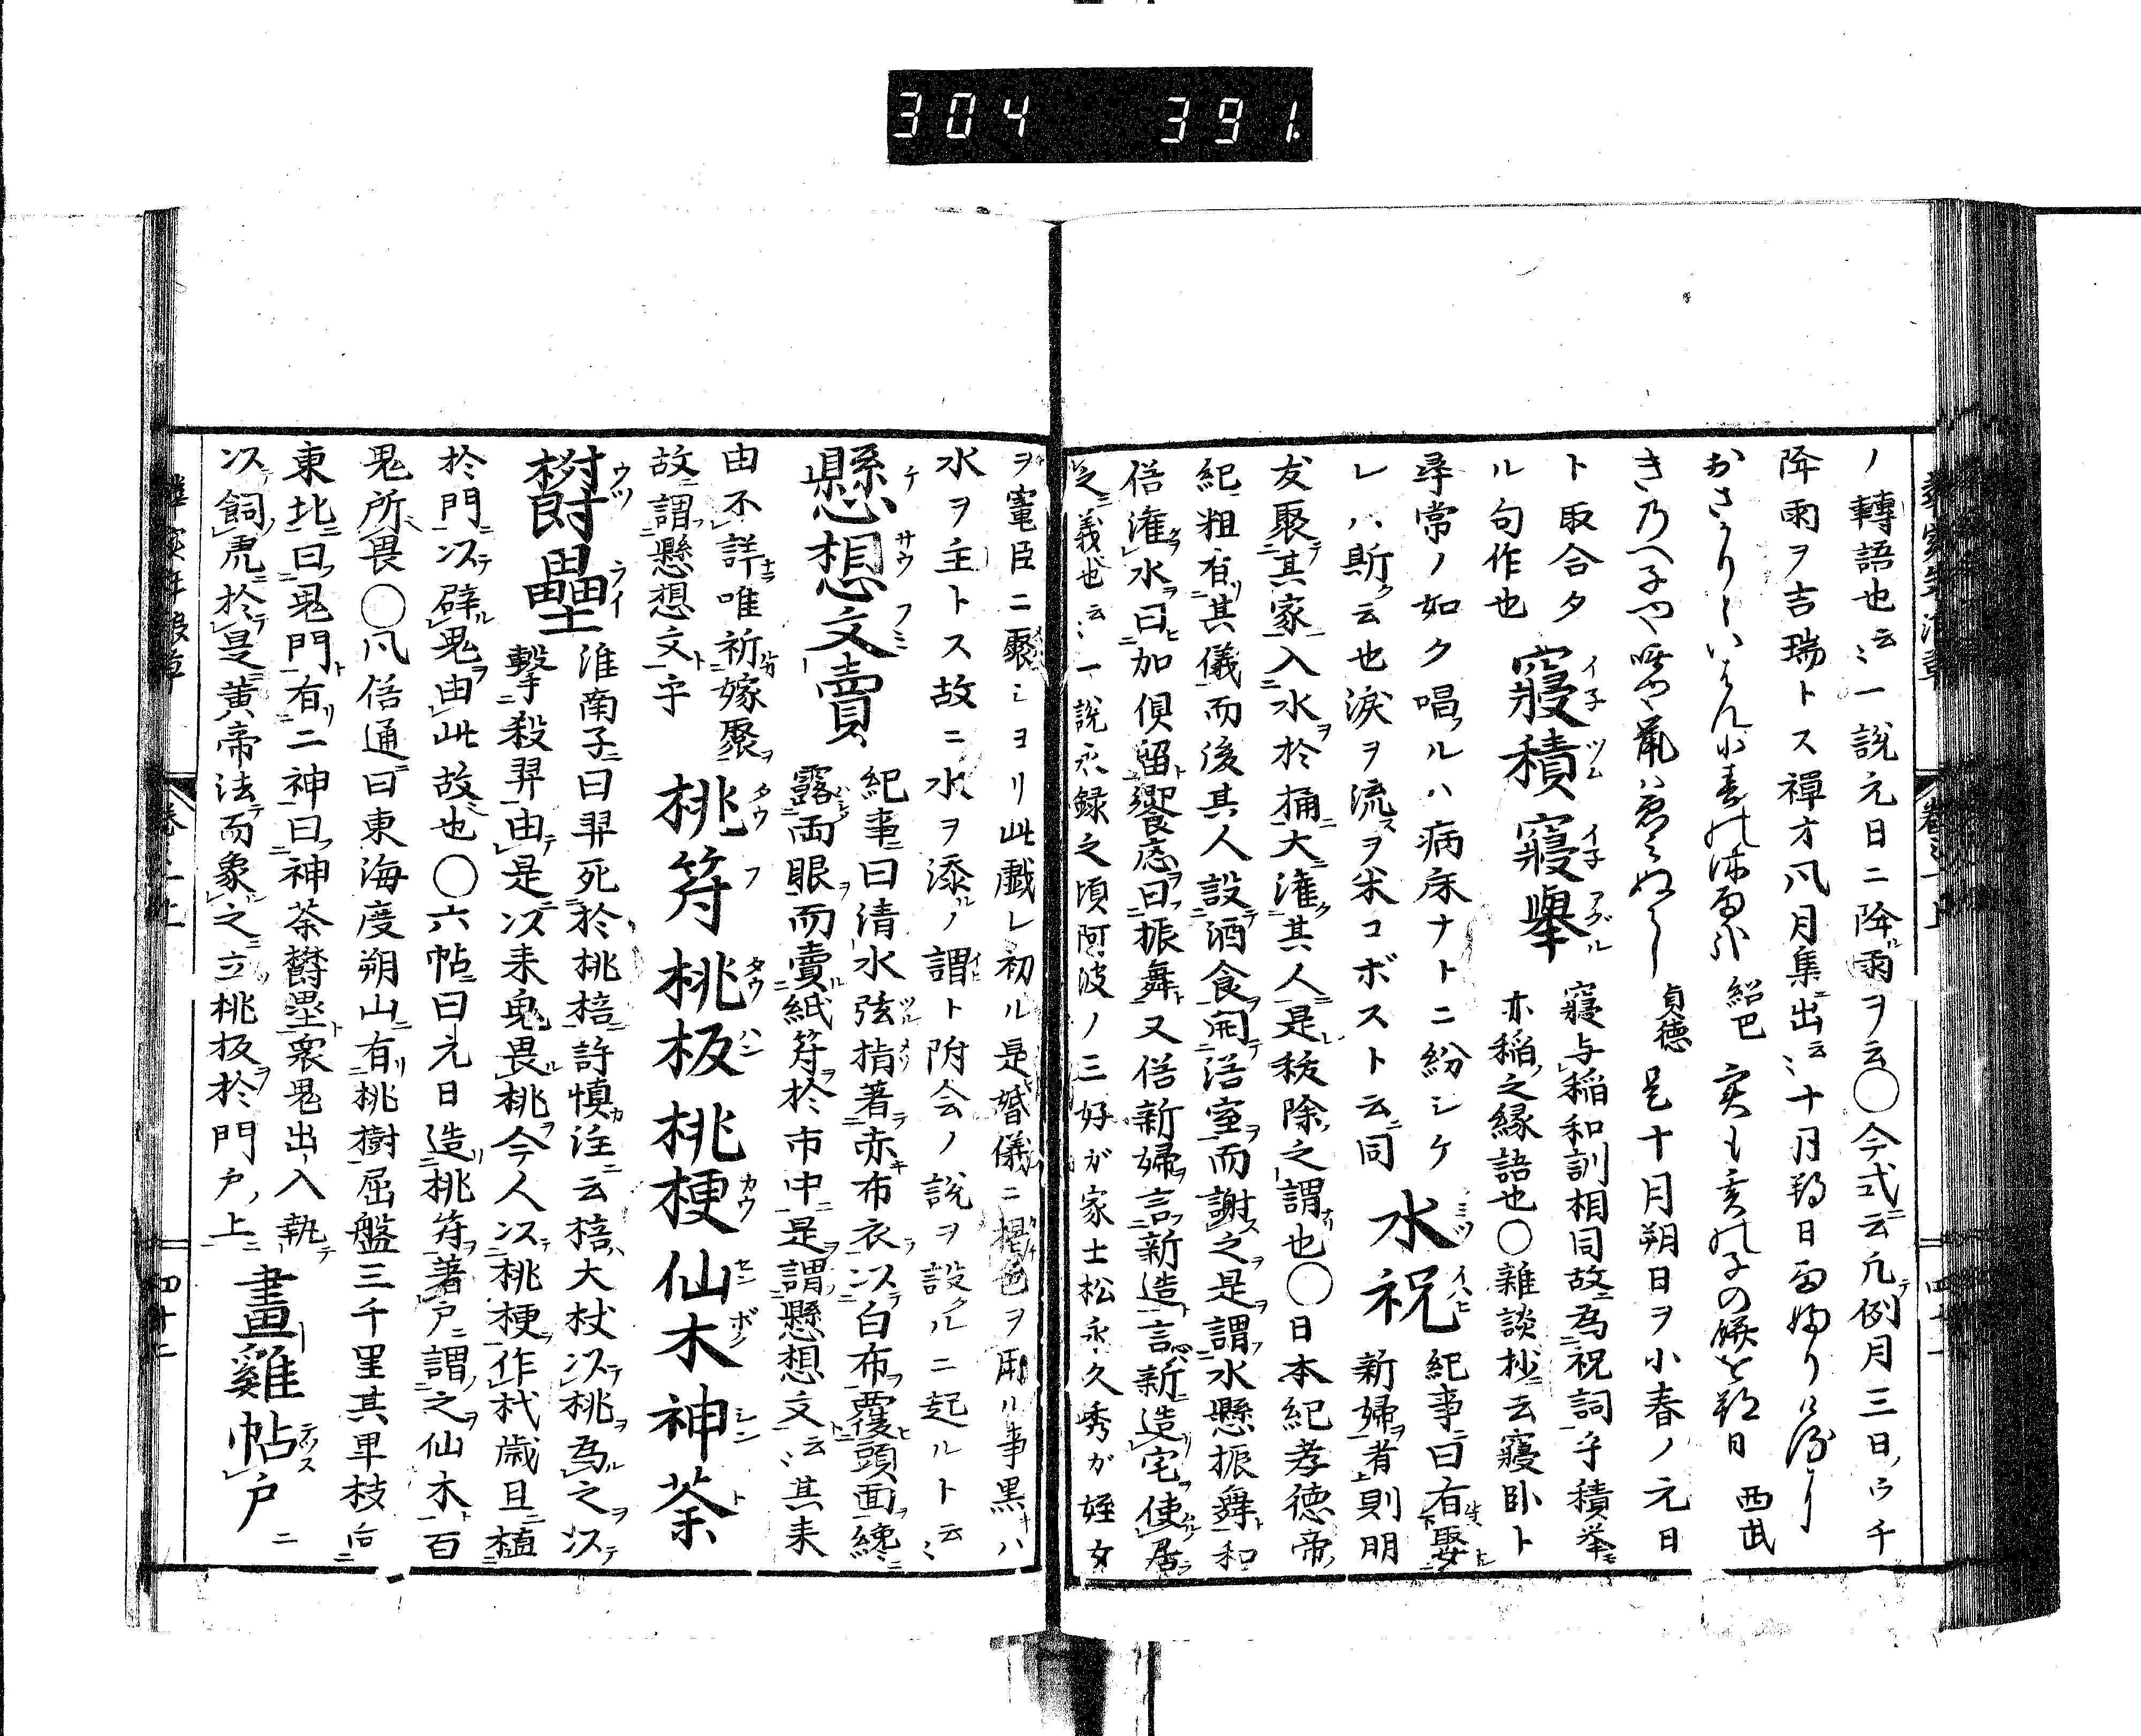 304 391.
ノ轉語也云〻一說元日ニ降雨ヲ云〇今式云凡例月三日ノウチ
降雨ヲ吉瑞トス禪才風月集出云〻十月朔日
おさがりといはん小春の 紹巴
西武
きのへ子や 貞德 是十月朔日ヲ小春ノ元日
ト取合タ
ル句作也
寢積 寢舉
イ子ツム イ子アグル
寢与稲和訓相同故為祝詞乎積挙
亦稲之縁語也〇雜談抄云寢卧ト
尋常ノ如ク唱ルハ病床ナトニ紛シケ
レハ斯云也淚ヲ流スヲ米コボスト云同
水祝
ミツイハヒ
紀事曰有娶
新婦者則明
友聚其家入水於桶大潅其人是秡除之謂也〇日本紀孝德帝
紀粗有其儀而後其人設酒食開浴室而謝之是謂水懸振舞和
俗潅水曰加俱留饗應曰振舞又俗新婦言新造言新造宅使居
之義也云〻一說永録之頃阿波ノ三好が家士松永久秀が姪女
ヲ竃臣ニ聚シヨリ此戲レ初ル是婚儀ニ 色ヲ用ル事黒ハ
水ヲ主トス故ニ水ヲ添ルノ謂ト附会ノ說ヲ設クルニ起ルト云〻
懸想文賣
テサウフミ
紀事曰清水弦指著赤布衣以白布覆頭面纔
露両眼而賣紙符於市中是謂懸想文云〻其来
由不詳唯祈嫁聚
故謂懸想文乎
桃符 桃板 桃梗 仙木 神荼
タウフ タウハン カウ センボク シント
欝壘
ウツライ
淮南子曰羿死於桃棓許慎注云棓大杖以桃為之以
擊殺羿由是以来鬼畏桃今人以桃梗作杙歳旦植
於門以辟鬼由此故也〇六帖曰元日造桃符著戸謂之仙木百
鬼所畏〇風俗通曰東海度朔山有桃樹屈盤三千里其卑枝向
東北曰鬼門有二神曰神荼欝壘衆鬼出入執
以飼虎於是黄帝法而象之立桃板於門戸上
畫雞帖戸
テツス ニ
四十二